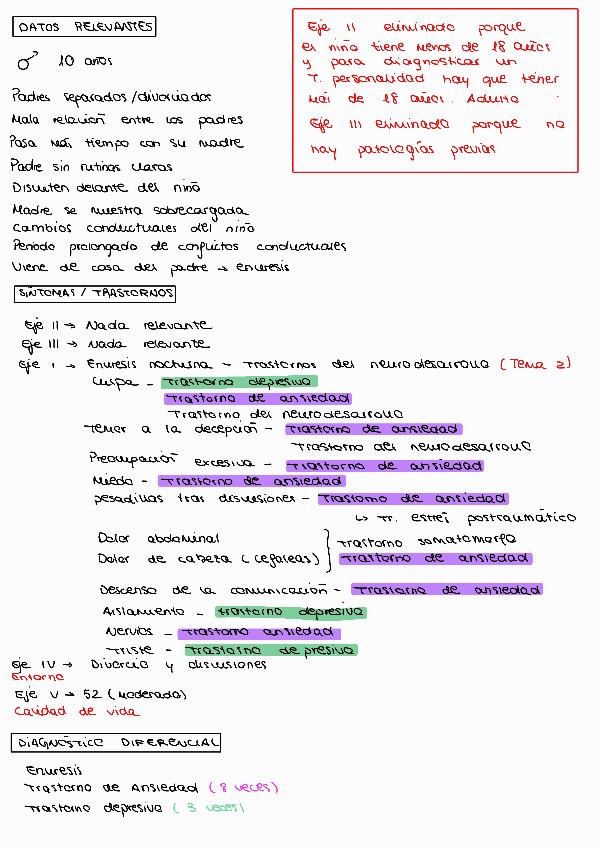 DATOS RELEVANTES
♂ 10 años
Padres separados/divorciados
Mala relación entre los padres
Pasa más tiempo con su madre
Padre sin rutinas claras
Discuten delante del niño
Madre se muestra sobrecargada
Cambios conductuales del niño
Periodo prolongado de conflictos conductuales
Viene de casa del padre → enuresis
Eje II eliminado porque
el niño tiene menos de 18 años
y para diagnosticar un
T. personalidad hay que tener
más de 18 años. Adulto
Eje III eliminado porque no
hay patologías previas
SÍNTOMAS / TRASTORNOS
Eje II → Nada relevante
Eje III → Nada relevante
Eje I → Enuresis nocturna - Trastornos del neurodesarrollo (Tema 2)
Culpa - Trastorno depresivo
Trastorno de ansiedad
Trastorno del neurodesarrollo
Temor a la decepción - Trastorno de ansiedad
Trastorno del neurodesarrollo
Preocupación excesiva - Trastorno de ansiedad
Miedo - Trastorno de ansiedad
pesadillas tras discusiones - Trastorno de ansiedad
↳ Tr. estrés postraumático
Dolor abdominal
Dolor de cabeza (cefaleas)
} Trastorno somatomorfo
Trastorno de ansiedad
Descenso de la comunicación - Trastorno de ansiedad
Aislamiento - trastorno depresivo
Nervios - Trastorno ansiedad
Triste - Trastorno depresivo
Eje IV → Divorcio y discusiones
Entorno
Eje V → 52 (moderado)
Calidad de vida
DIAGNÓSTICO DIFERENCIAL
Enuresis
Trastorno de Ansiedad (8 veces)
Trastorno depresivo (3 veces)